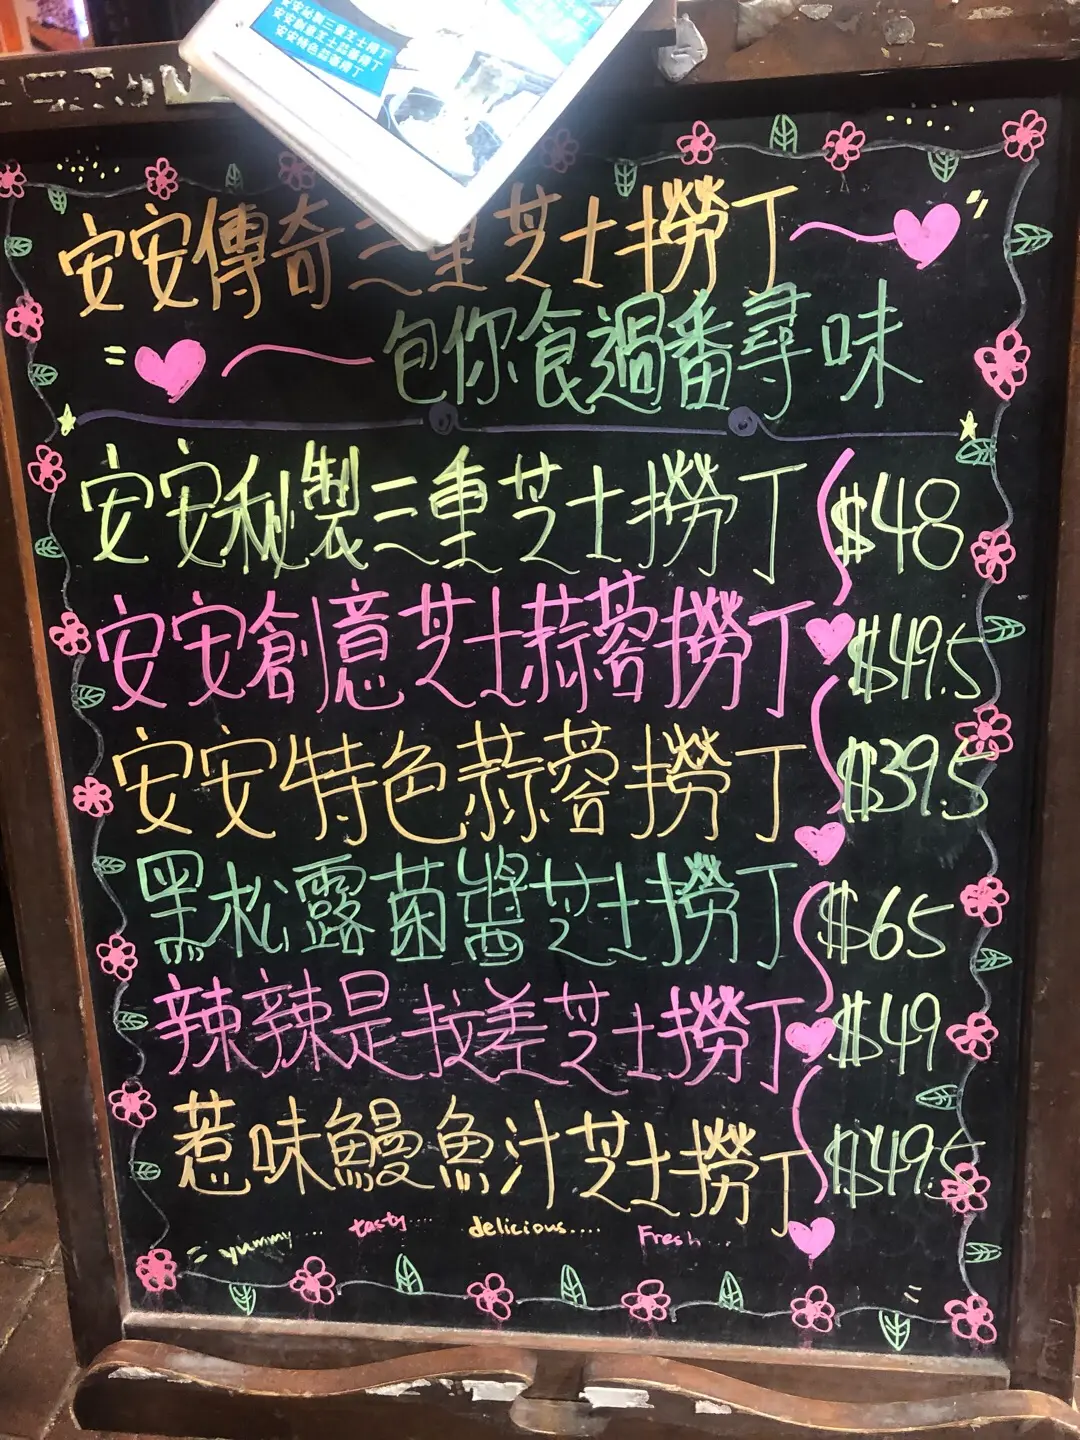 安安秘製三重芝士撈丁
安安創意芝士蒜蓉撈丁
安安特色蒜蓉撈丁
安安傳奇三重芝士撈丁
包你食過番尋味
安安秘製三重芝士撈丁 $48
安安創意芝士蒜蓉撈丁 $49.5
安安特色蒜蓉撈丁 $39.5
黑松露菌醬芝士撈丁 $65
辣辣是拉差芝士撈丁 $49
惹味鰻魚汁芝士撈丁 $49.5
yummy.... tasty.... delicious.... Fresh...